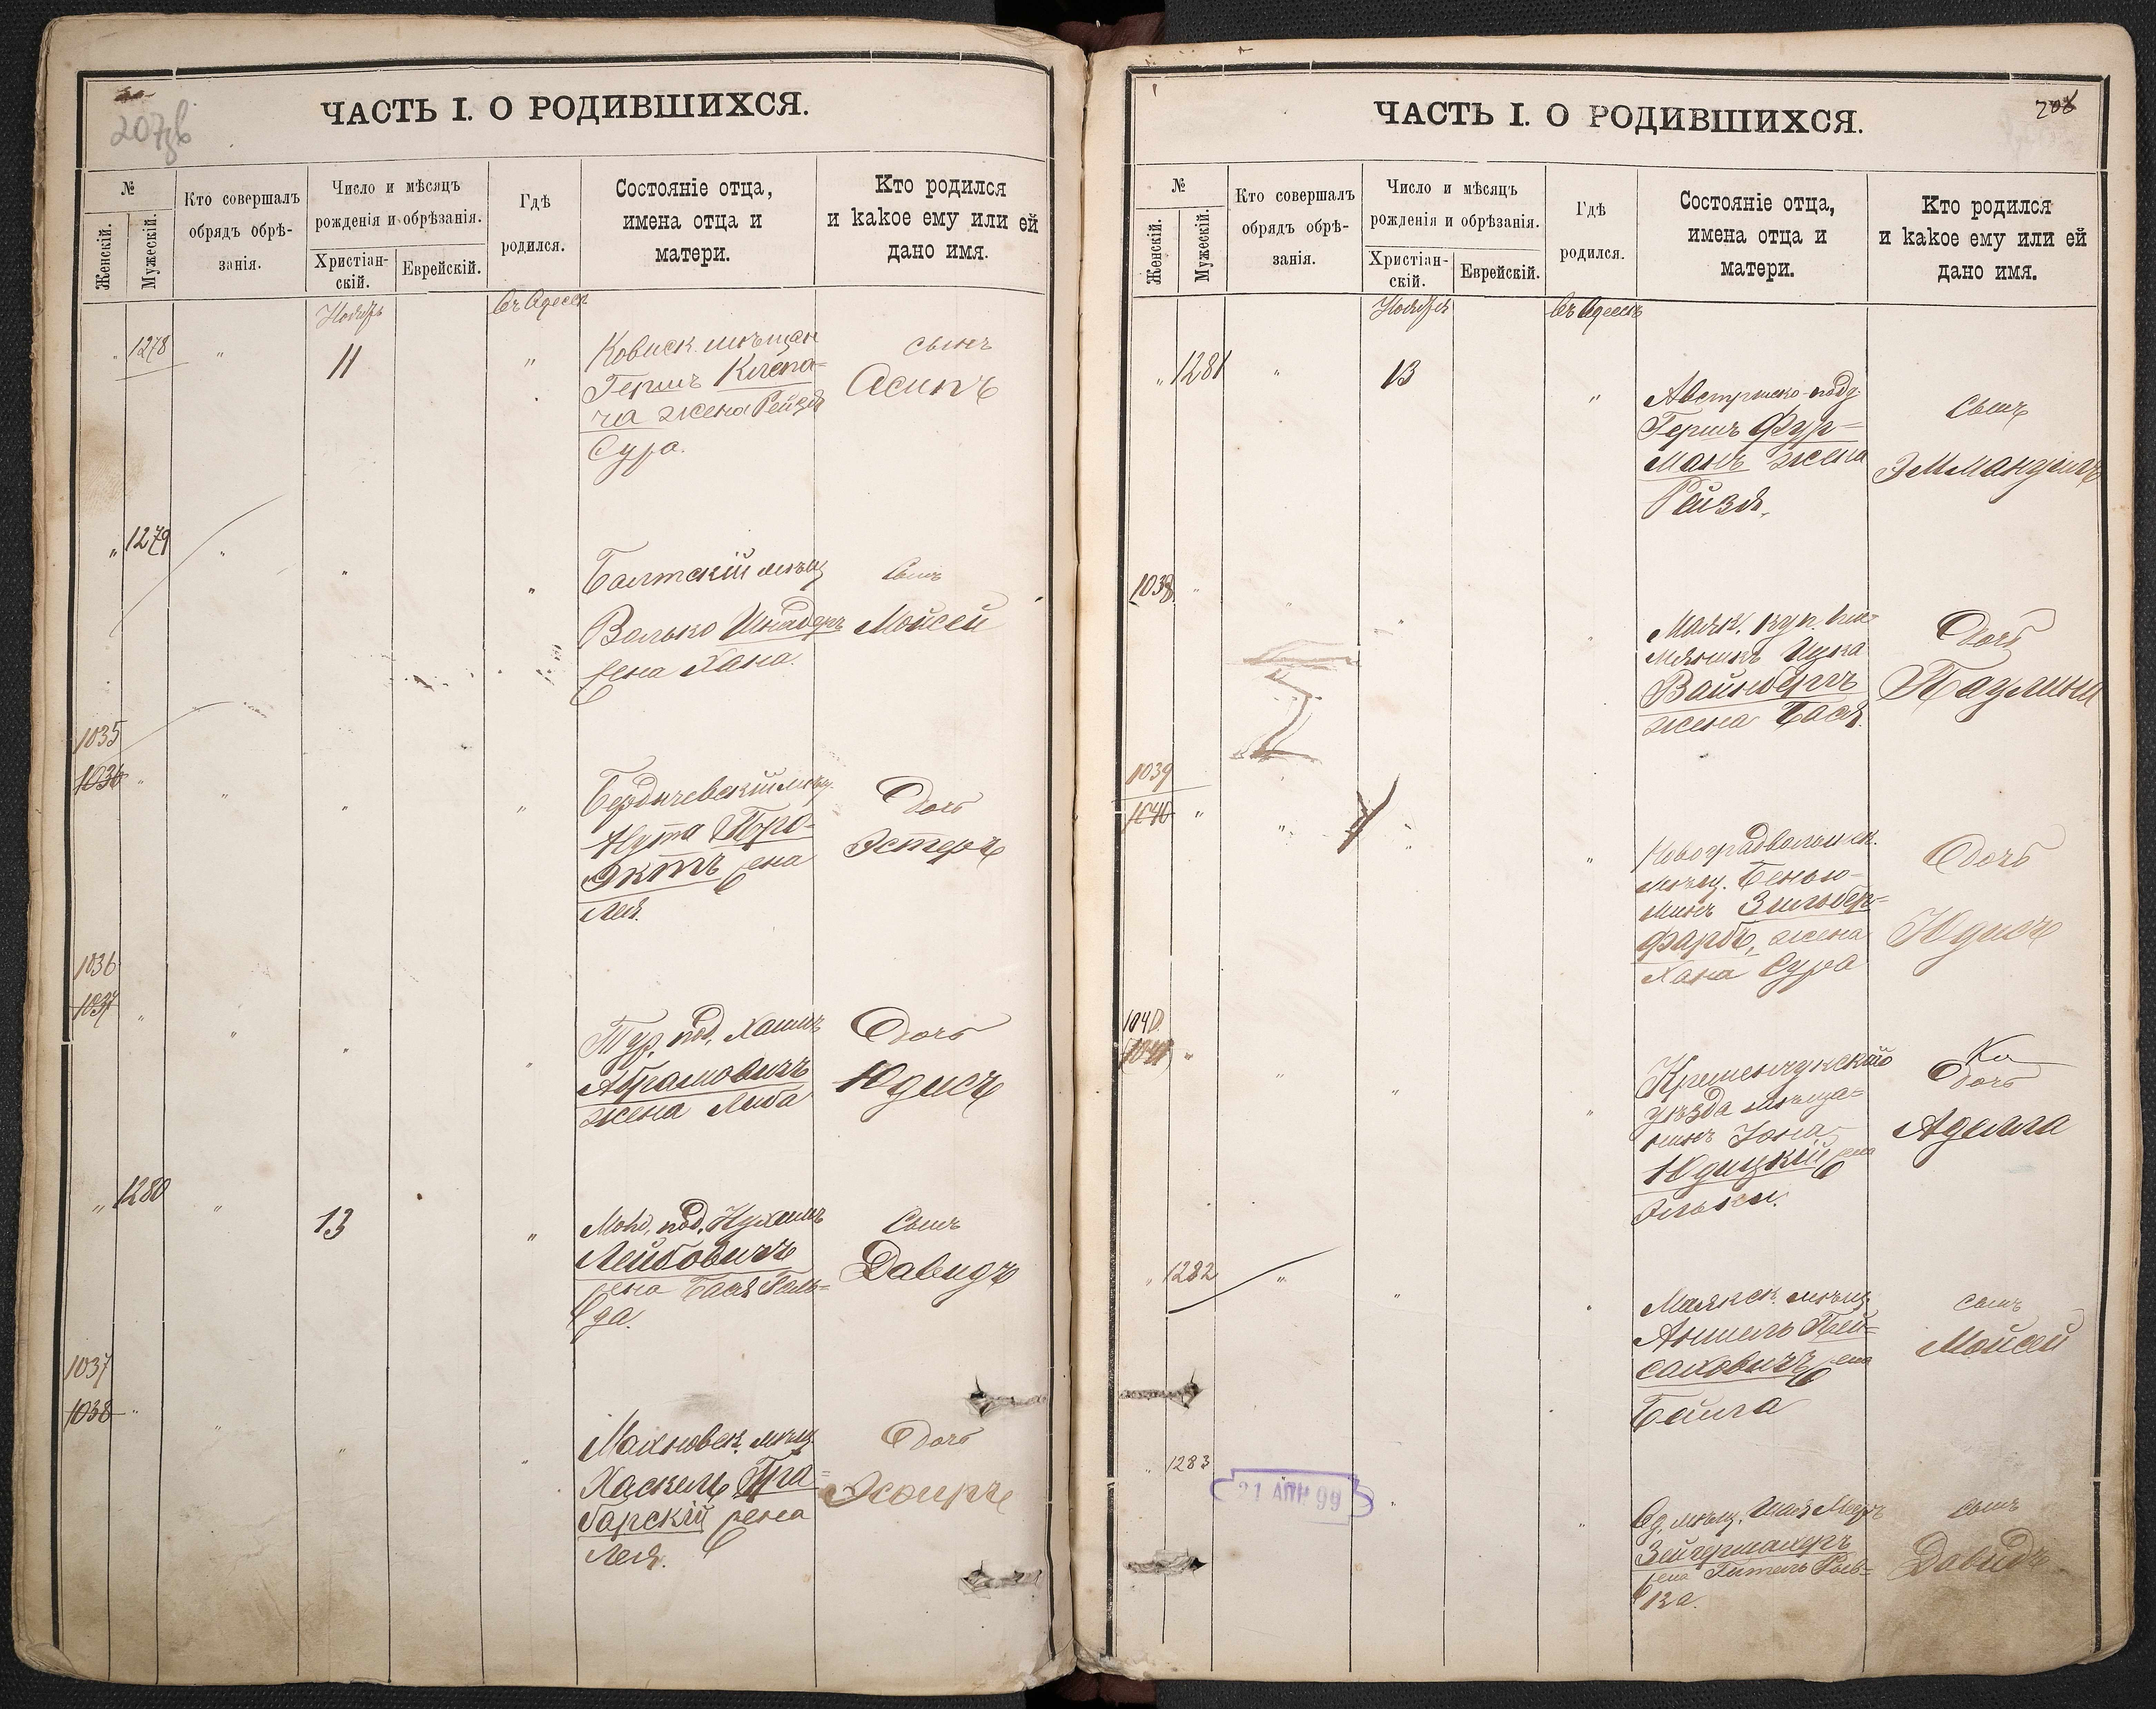 207зв
ЧАСТЬ I. О РОДИВШИХСЯ.
№
Женскій.
Мужескій.
Кто совершалъ
обрядъ обрѣ-
занія.
Число и мѣсяцъ
рожденія и обрѣзанія.
Христіан-
скій.
Еврейскій.
Гдѣ
родился.
Состояніе отца,
имена отца и
матери.
Кто родился
и какое ему или ей
дано имя.
Ноябрь
въ Одессѣ
" 1278 " 11 "
Ковнск. мѣщан
Гершъ Клепа-
ча жена Рейзя
Сура.
сынъ
Осипъ
" 1279 " " "
Балтскій мѣщ
Волько Шнайдеръ
жена Хана.
Сынъ
Мойсей
1035
1036 " " " "
Бердичевскій мѣщ.
Нута Про-
эктъ жена
Лея.
Дочь
Эстеръ
1036
1037 " " " "
Тур. под. Хаимъ
Абрамовичъ
жена Либа
Дочь
Юдисъ
" 1280 " 13 "
под. Нухимъ
Лейбовичъ
жена Бася Голь-
да.
Сынъ
Давидъ
1037
1038 " " " "
Махновск. мѣщ.
Хаскель Гра-
барскій жена
Лея.
Дочь
Эсфирь
208
ЧАСТЬ I. О РОДИВШИХСЯ.
№
Женскій.
Мужескій.
Кто совершалъ
обрядъ обрѣ-
занія.
Число и мѣсяцъ
рожденія и обрѣзанія.
Христіан-
скій.
Еврейскій.
Гдѣ
родился.
Состояніе отца,
имена отца и
матери.
Кто родился
и какое ему или ей
дано имя.
Ноября
въ Одессѣ
" 1281 " 13 "
Австрійско-подд.
Гершъ Фур-
манъ жена
Рейзя.
Сынъ
Эммануилъ
1038 " " " "
Маяк. куп. пле-
мянникъ Ицка
Вайнбергъ
жена Бася.
Дочь
Паулина
1039
1040 " " " "
Новоградволынск.
мѣщ. Бенью-
минъ Зильбер-
фарбъ, жена
Хана Сура
Дочь
Юдисъ
1040
1041 " " " "
Кременчукскаго
уѣзда мѣща-
нинъ Iона
Юдицкій жена
Элька.
Дочь
Аделла
" 1282 " " "
Маякск. мѣщ
Аншель Пей-
саховичъ жена
Бейла
сынъ
Мойсей
" 1283 " "
21 АПР 99
Од. мѣщ. Шая Мееръ
Зейгермахеръ
жена Гитель Рив-
ка.
сынъ
Давидъ